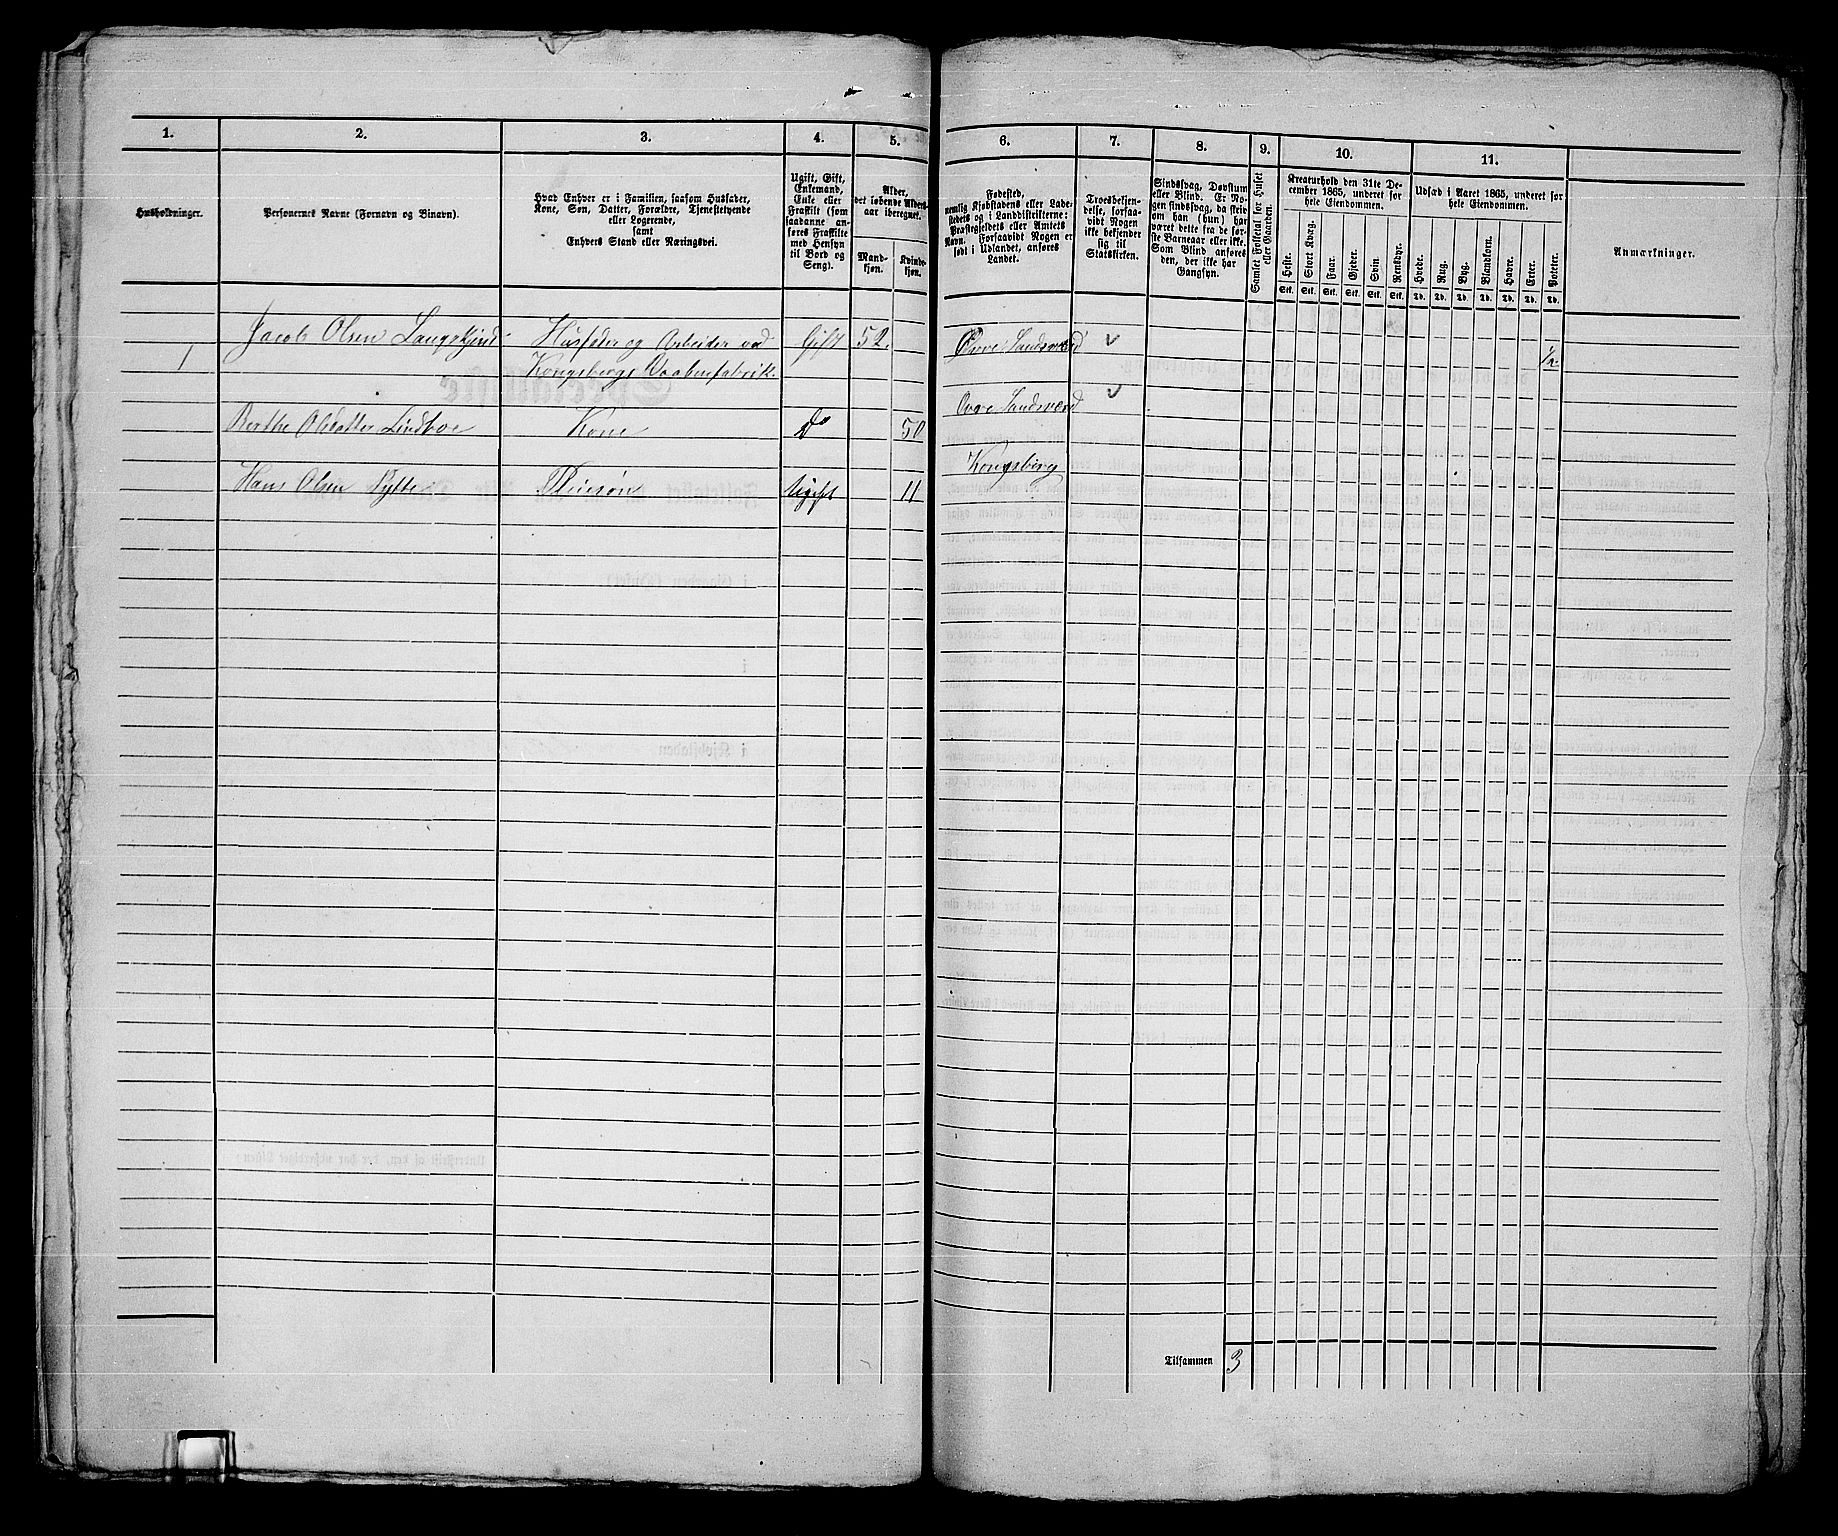 1. 2. 3. 4. 5. 6. 7. 8. 9. 10. 11.
Husholdninger.
Personernes Navne (Fornavn og Binavn).
Hvad Enhver er i Familien, saasom Husfader,
Kone, Søn, Datter, Forældre, Tjenestetyende
eller Logerende,
samt
Enhvers Stand eller Næringsvei.
Ugift, Gift,
Enkemand,
Enke eller
Fraskilt (som
saadanne an-
føres Fraskilte
med Hensyn
til Bord og
Seng).
Alder,
det løbende Alders-
aar iberegnet.
Mand-
kjøn.
Kvinde-
kjøn.
Fødested,
nemlig Kjøbstadens eller Lade-
stedets og i Landdistrikterne:
Præstegjeldets eller Amtets
Navn. Forsaavidt Nogen er
født i Udlandet, anføres
Landet.
Troesbekjen-
delse, forsaa-
vidt Nogen
ikke bekjender
sig til
Statskirken.
Sindssvag, Døvstum
eller Blind. Er No-
gen sindssvag, da skriv
om han (hun) har
været dette fra de før-
ste Barneaar eller ikke.
Som Blind anføres
den, der ikke har
Gangsyn.
Samlet Folketal for Huset
eller Gaarden.
Kreaturhold den 31te De-
cember 1865, underet for
hele Eiendommen.
Heste. Stort Kvæg. Faar. Gjeder. Svin. Rensdyr.
Stk. Stk. Stk. Stk. Stk. Stk.
Udsæd i Aaret 1865, underet for
hele Eiendommen.
Hvede. Rug. Byg. Blandkorn. Havre. Erter. Poteter.
Td. Td. Td. Td. Td. Td. Td.
Anmærkninger.
1 Jacob Olsen Husfader og Arbeider ved Gift 52. Sandsværd 1/2
Kongsbergs Vaabenfabrik.
Berthe Olsdatter Lindboe Kone do 50 Sandsværd
Hans Olsen Pleiesøn Ugift 11 Kongsberg
Tilsammen 3